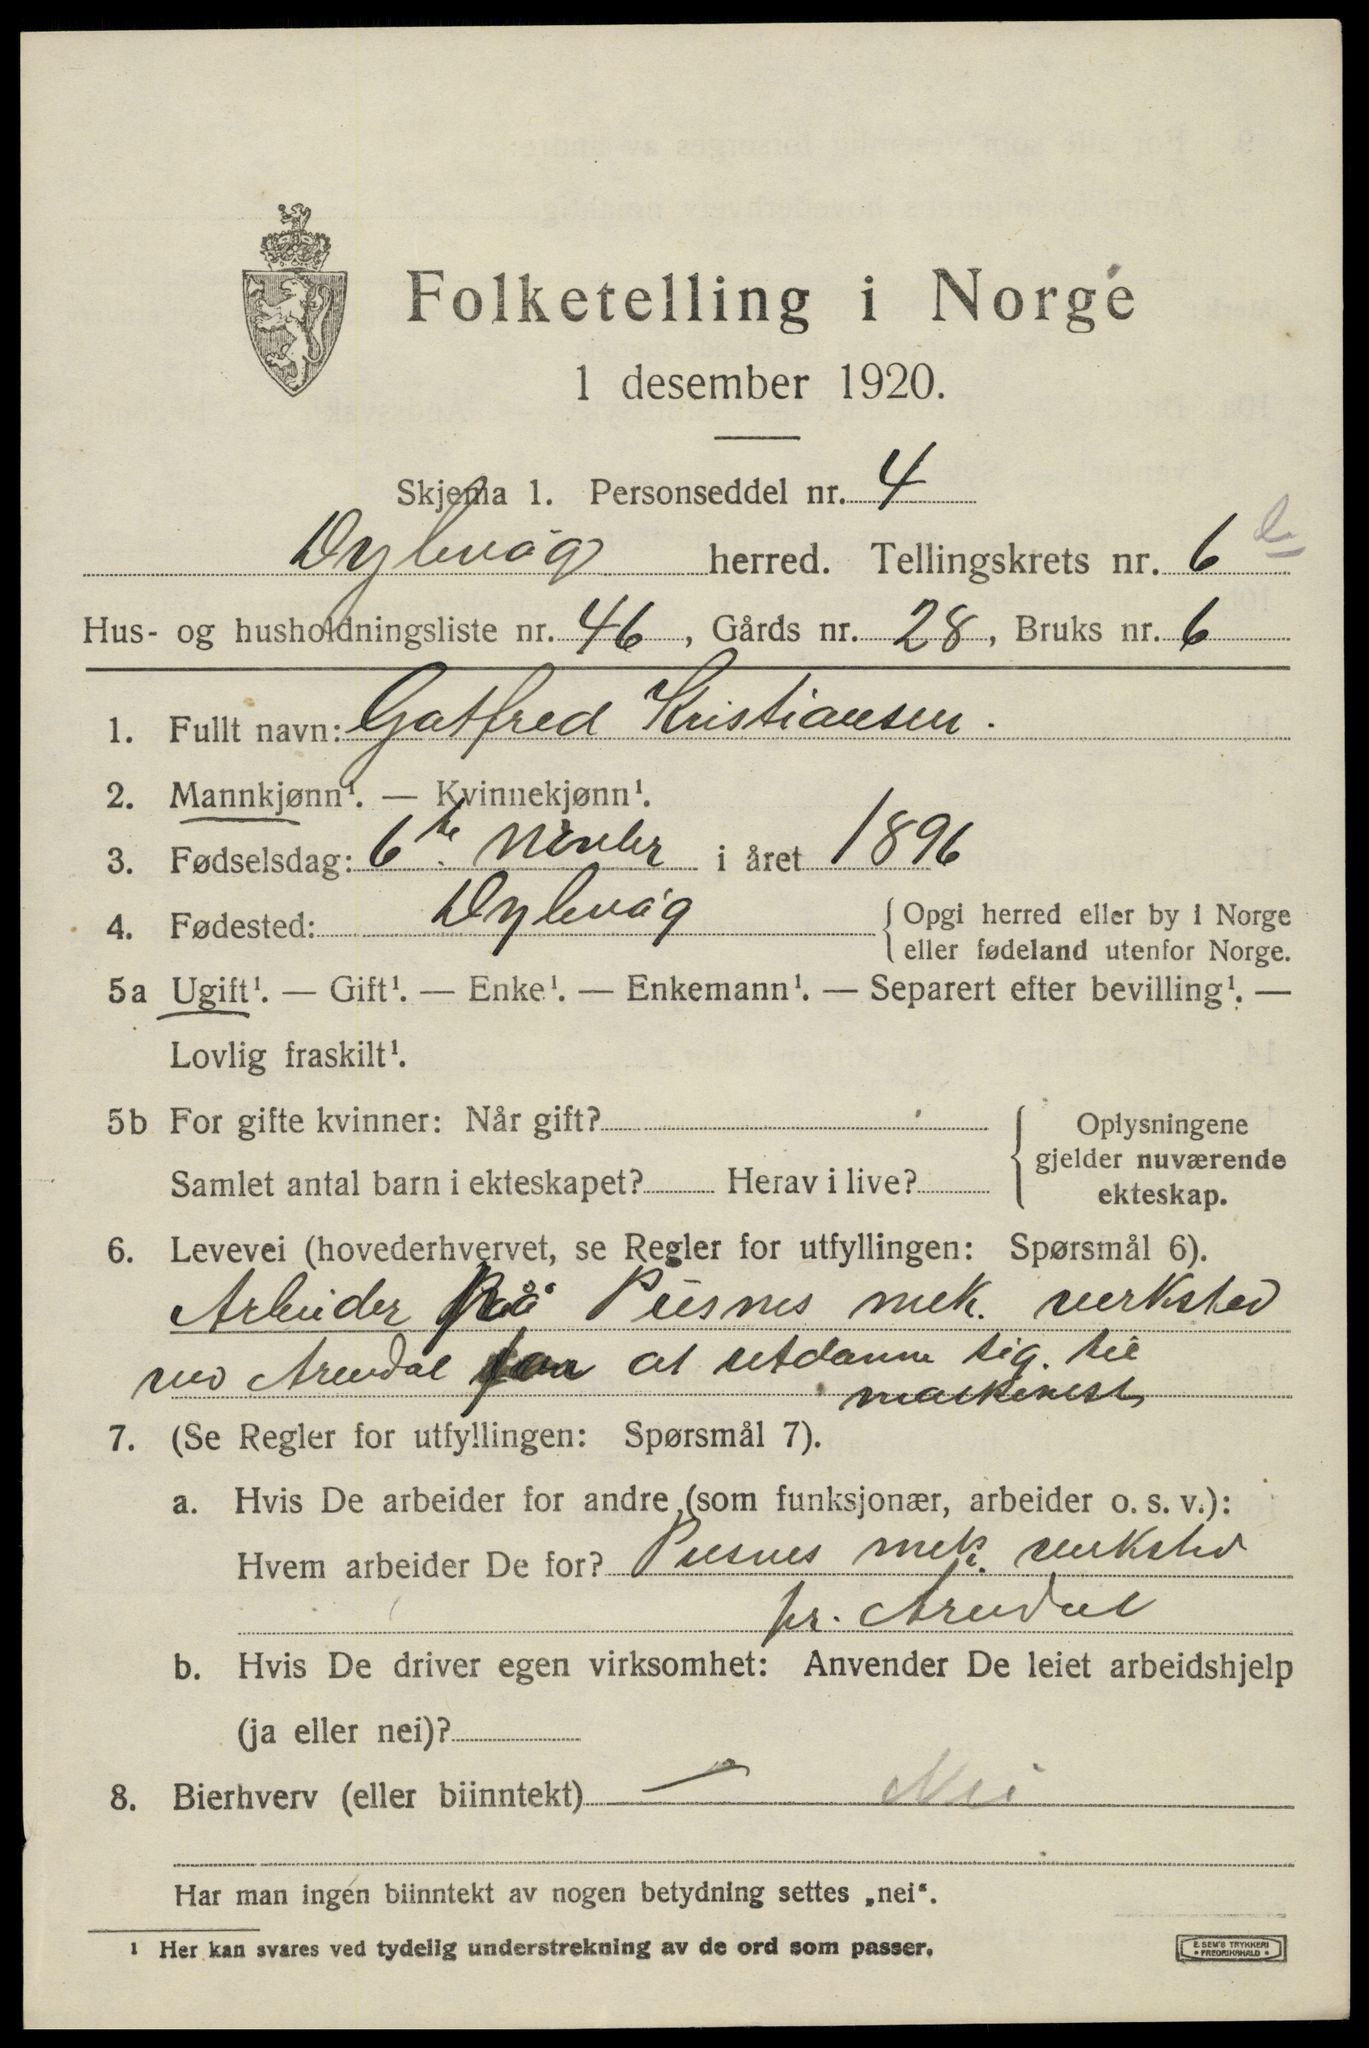 Folketelling i Norge
1 desember 1920.
Skjema 1. Personseddel nr. 4
Dybvåg herred. Tellingskrets nr. 6
Hus- og husholdningsliste nr. 46, Gårds nr. 28, Bruks nr. 6
1. Fullt navn: Gatfred Kristiansen.
2. Mannkjønn¹. — Kvinnekjønn¹.
3. Fødselsdag: 6te i året 1896
4. Fødested: Dybvåg { Opgi herred eller by i Norge
eller fødeland utenfor Norge.
5a Ugift¹. — Gift¹. — Enke¹. — Enkemann¹. — Separert efter bevilling¹. —
Lovlig fraskilt¹.
5b For gifte kvinner: Når gift?
Samlet antal barn i ekteskapet? Herav i live?
{ Oplysningene
gjelder nuværende
ekteskap.
6. Levevei (hovederhvervet, se Regler for utfyllingen: Spørsmål 6).
Arbeider på Pusnes mek. verksted
ved Arendal for at utdanne sig. til
maskinist
7. (Se Regler for utfyllingen: Spørsmål 7).
a. Hvis De arbeider for andre (som funksjonær, arbeider o. s. v.):
Hvem arbeider De for? Pusnes mek. verksted
pr. Arendal
b. Hvis De driver egen virksomhet: Anvender De leiet arbeidshjelp
(ja eller nei)?
8. Bierhverv (eller biinntekt) — Nei
Har man ingen biinntekt av nogen betydning settes „nei“.
¹ Her kan svares ved tydelig understrekning av de ord som passer.
E. SEM'S TRYKKERI
• FREDRIKSHALD •